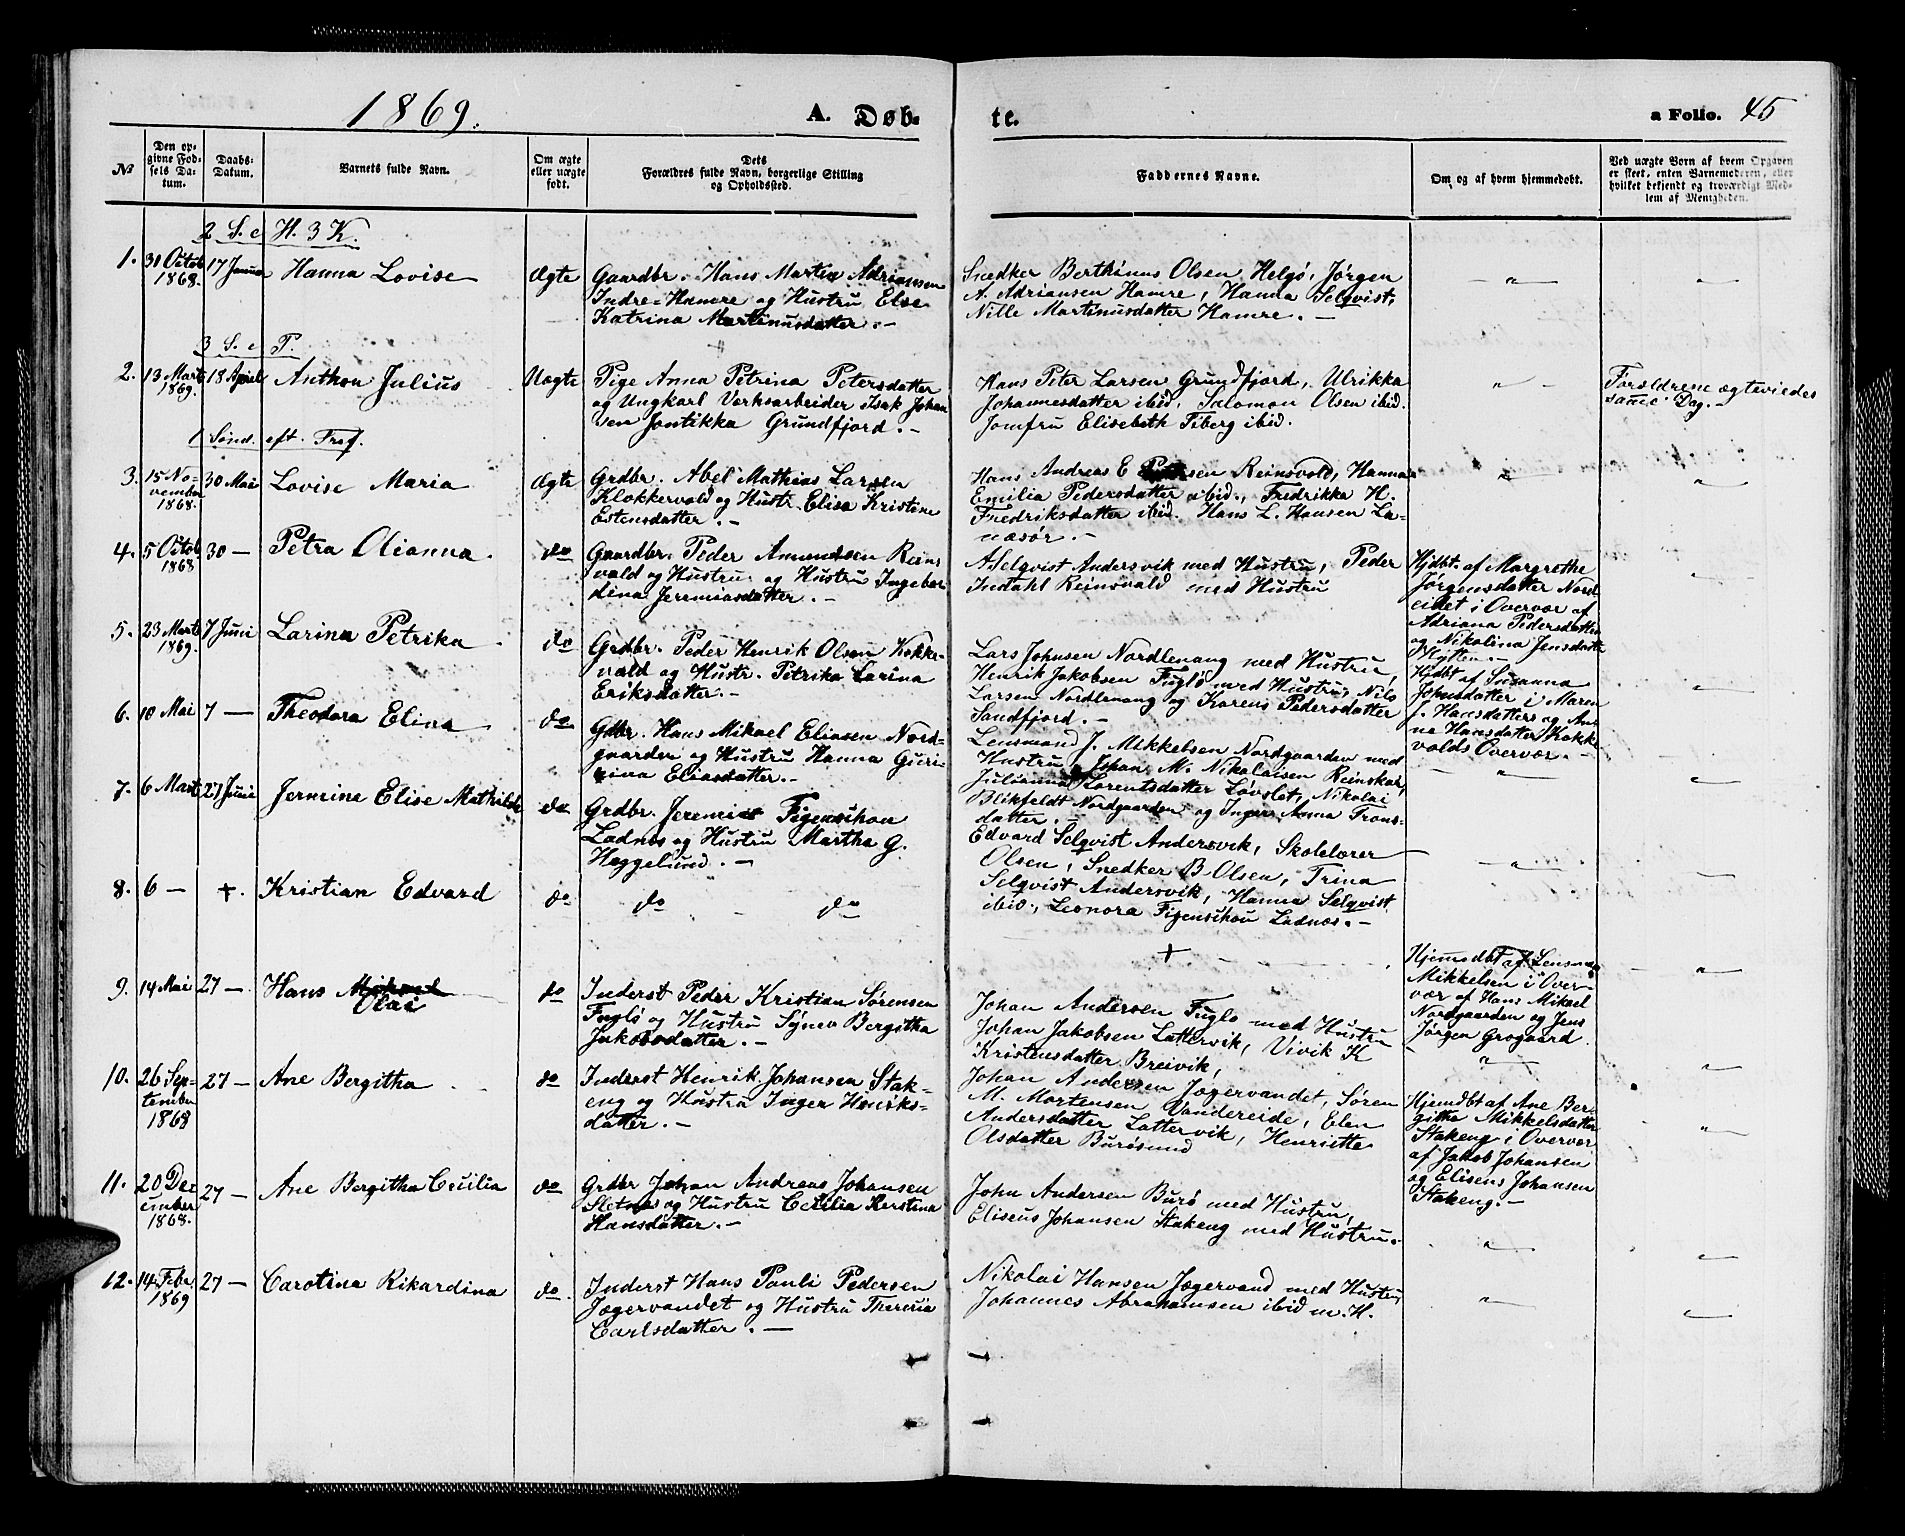 1869.
A. Døb-
te.
a Folio. 45
№
Den op-
givne Fød-
sels Da-
tum.
Daabs-
Datum.
Barnets fulde Navn.
Om ægte
eller uægte
født.
Dets
Forældres fulde Navn, borgerlige Stilling
og Opholdssted.
Faddernes Navne.
Om og af hvem hjemmedøbt.
Ved uægte Børn af hvem Opgaven
er skeet, enten Barnemoderen, eller
hvilket bekjendt og troværdigt Med-
lem af Menigheden.
2 S. e H. 3 K.
1. 31 Octob
1868.
17 Janua
Hanna Lovise
Ægte
Gaardbr. Hans Martin Adriansen
Indre-Hamre og Hustru Else
Katrina Martinusdatter.-
Snedker Berthinus Olsen Helgø, Jørgen
A. Adriansen Hamre, Hanna Selqvist,
Nille Martinusdatter Hamre.-
3 S. e P.
2. 13 Marts
1869.
18 April
Anthon Julius
Uægte
Pige Anna Petrina Petersdatter
og Ungkarl Værksarbeider Isak Johan
sen Jontikka Grundfjord.-
Hans Peter Larsen Grundfjord, Ulrikka
Johannesdatter ibid, Salomon Olsen ibid.
Jomfru Elisebeth Fiberg ibid.
Forældrene ægteviedes
samme Dag.-
1 Sønd. eft. Tref.
3. 15 No-
vember
1868.
30 Mai
Lovise Maria
Ægte
Grdbr. Abel Mathias Larsen
Klokkervold og Hustr. Elise Kristine
Estensdatter.-
Hans Andreas E Reinsvold, Hanna
Emilia Pedersdatter ibid., Fredrikka H.
Fredriksdatter ibid. Hans L. Hansen La-
næsør.-
4. 5 Octob
1868
30 —
Petra Olianna
do
Gaardbr. Peder Amundsen Reins
vald og Hustru. og Hustru Ingebor
dina Jeremiasdatter.-
A Selqvist Andersvik med Hustru, Peder
Indahl Reinsvald med Hustru
Hjdbt. af Margrethe
Jørgensdatter Nord
eidet i Overvær af
Adriana Pedersdatter
og Nikolina Jensdatt
Nytten.-
5. 23 Marts
1869.
7 Juni
Larina Petrika
do
Grdbr. Peder Henrik Olsen Kokke-
vald og Hustr. Petrika Larina
Eriksdatter.-
Lars Johnsen Nordlenang med Hustru,
Henrik Jakobsen Fuglø med Hustru, Nils
Larsen Nordlenang og Karens Pedersdatter
Sandfjord.-
Hjdbt af Susanna
Johnsdatter i Maren
J. Hansdatters og An-
ne Hansdatter Kokke-
volds Overvær.-
6. 10 Mai
7 —
Theodora Elina
do
Gdbr. Hans Mikael Eliasen Nord-
gaarden og Hustru Hanna Guri-
na Eliasdatter.-
Lensmand J. Mikkelsen Nordgaarden med
Hustru, Johan M. Nikolaisen Reinskar,
Julianna Lorentsdatter Løvslet, Nikolai
Blikfeldt Nordgaarden og Inger Anna Trons-
datter.-
7. 6 Marts
27 Juni
Jermine Elise Mathilde
do
Grdbr. Jeremias Figenschou
Ladnes og Hustru Martha G.
Heggelund.-
Edvard Selqvist Andersvik, Skolelærer
Olsen, Snedker B Olsen, Trina
Selqvist Andersvik, Hanna Selqvist
ibid., Leonora Figenschou Ladnæs.-
8. 6 —
+.
Kristian Edvard
do
do do
+
9. 14 Mai
27 —
Hans Mikael
Olai
do
Inderst Peder Kristian Sørensen
Fuglø og Hustru Synev Bergitha
Jakobsdatter.-
Johan Andersen Fuglø med Hustru
Johan Jakobsen Lattervik, Vivik K
Kristensdatter Breivik,
Hjemmdbt af Lensmd
Mikkelsen i Over-
vær af Hans Mikael
Nordgaarden og Jens
Jørgen Grogaard.
10. 26 Sep-
tember
1868
27 —
Ane Bergitha
do
Inderst Henrik Johansen Stak-
eng og Hustru Inger Henriks-
datter.-
Johan Andersen Jægervandet, Søren
M. Mortensen Vandereide, Elen
Andersdatter Lattervik, Henriette
Olsdatter Burøsund
Hjemdbt af Ane Ber-
githe Mikkelsdatter
Stakeng i Overvær
af Jakob Johansen
og Elisens Johansen
Stakeng.-
11. 20 Dec
ember
1868.
27 —
Ane Bergitha Cecilia
do
Grdbr Johan Andreas Johansen
Sletnes og Hustru Cecilia Kerstina
Hansdatter.-
John Andersen Burø med Hustru,
Eliseus Johansen Stakeng med Hustru.
12. 14 Febr
1869
27 —
Carotina Rikardina
do.
Inderst Hans Pauli Pedersen
Jægervandet og Hustru Theresia
Carlsdatter.-
Nikolai Hansen Jægervand med Hustru
Johannes Abrahamsen ibid m. H.